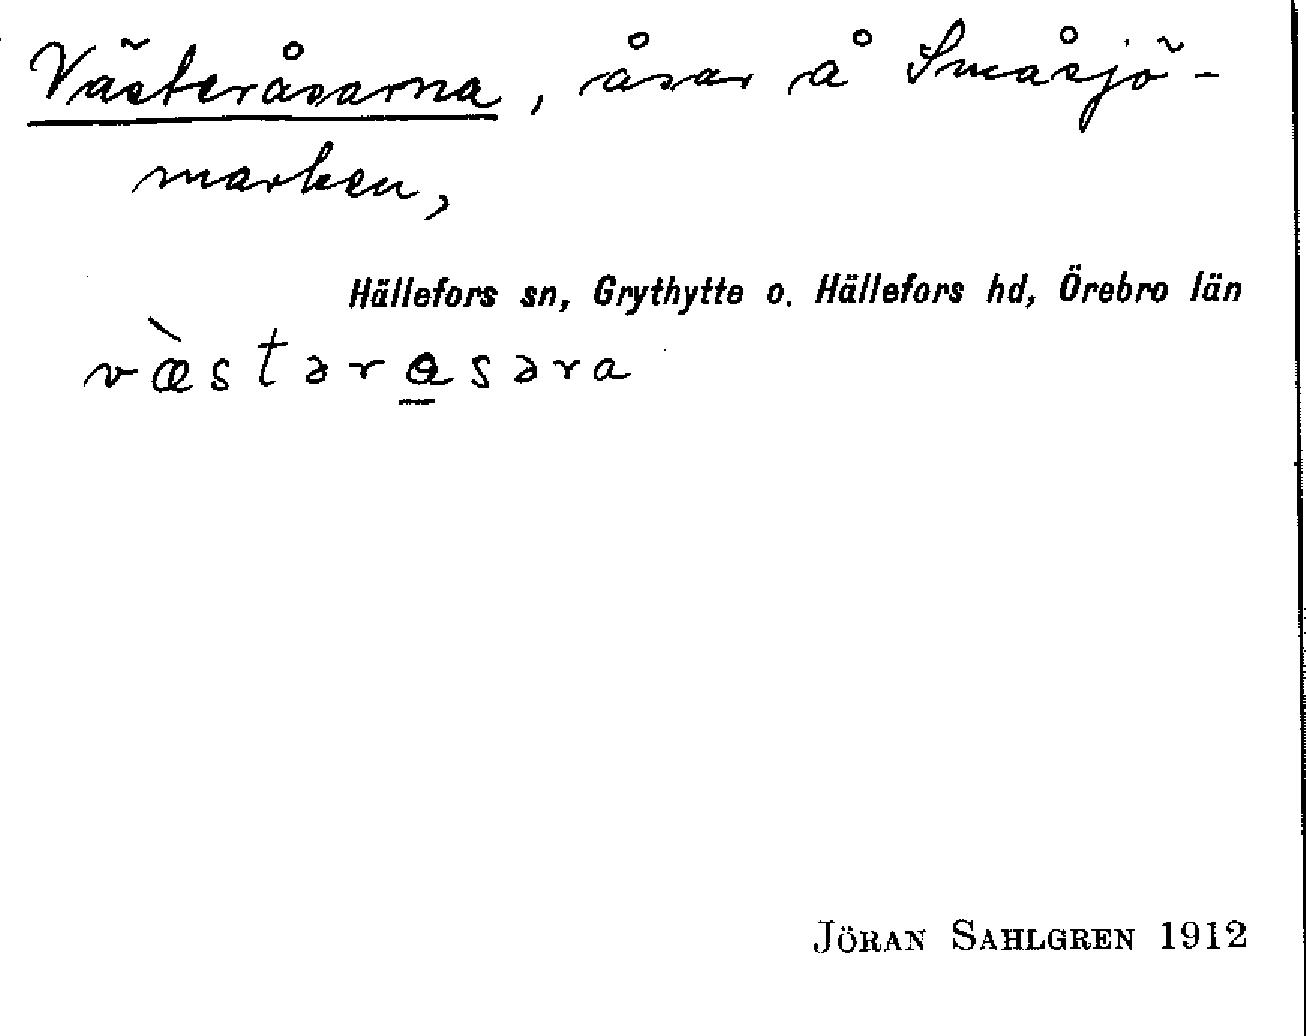 Västeråsarna, åsar å Småsjö-
marken,
Hällefors sn, Grythytte o. Hällefors hd, Örebro län
væ̀stərɑ̲səra
JÖRAN SAHLGREN 1912